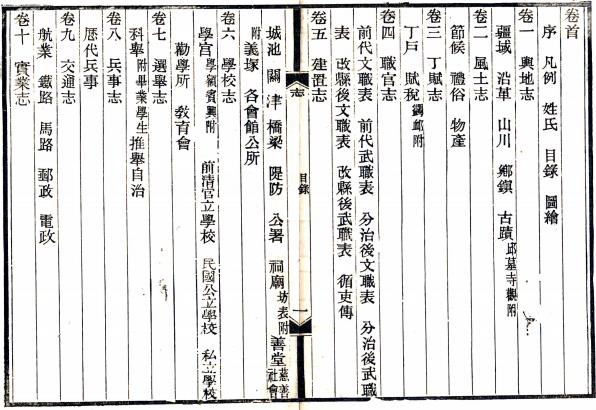 卷首
序 凡例 姓氏 目錄 圖繪
卷一 輿地志
疆域 沿革 山川 鄉鎮 古蹟邱墓寺觀附
卷二 風土志
節候 禮俗 物產
卷三 丁賦志
丁戶 賦稅蠲卹附
卷四 職官志
前代文職表 前代武職表 分治後文職表 分治後武職
表 改縣後文職表 改縣後武職表 循吏傳
卷五 建置志
志 目錄 一
城池 關津 橋梁 隄防 公署 祠廟坊表附 善堂慈善社會
附 義塚 各會館公所
卷六 學校志
學宮學額賓興附 前清官立學校 民國公立學校 私立學校
勸學所 敎育會
卷七 選舉志
科舉附畢業學生 推舉自治
卷八 兵事志
歷代兵事
卷九 交通志
航業 鐵路 馬路 郵政 電政
卷十 實業志